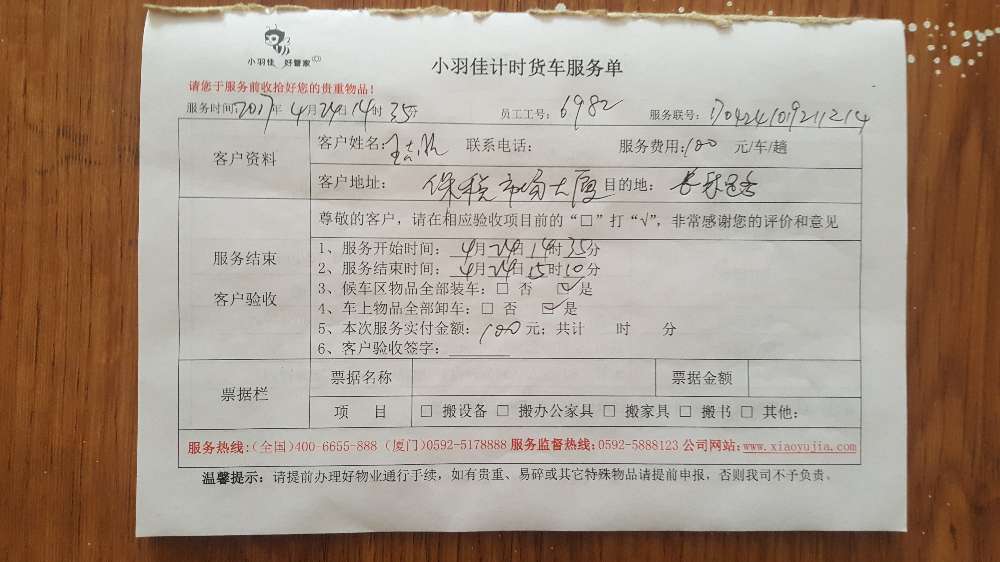 小羽佳 好管家
小羽佳计时货车服务单
请您于服务前收拾好您的贵重物品！
服务时间:2017年4月24日14时35分 员工工号: 6982 服务联号: 170424109211214
客户资料
客户姓名: 联系电话: 服务费用:100 元/车/趟
客户地址: 保税市场大厦 目的地:
服务结束
客户验收
尊敬的客户，请在相应验收项目前的“□”打“√”，非常感谢您的评价和意见
1、服务开始时间: 4月24日14时35分
2、服务结束时间: 4月24日15时10分
3、候车区物品全部装车: □ 否 ☑是
4、车上物品全部卸车: □ 否 ☑是
5、本次服务实付金额: 100元; 共计 时 分
6、客户验收签字:
票据栏
票据名称 票据金额
项 目 □ 搬设备 □ 搬办公家具 □ 搬家具 □ 搬书 □ 其他:
服务热线:(全国)400-6655-888 (厦门)0592-5178888 服务监督热线:0592-5888123 公司网站:www.xiaoyujia.com
温馨提示: 请提前办理好物业通行手续，如有贵重、易碎或其它特殊物品请提前申报，否则我司不予负责。